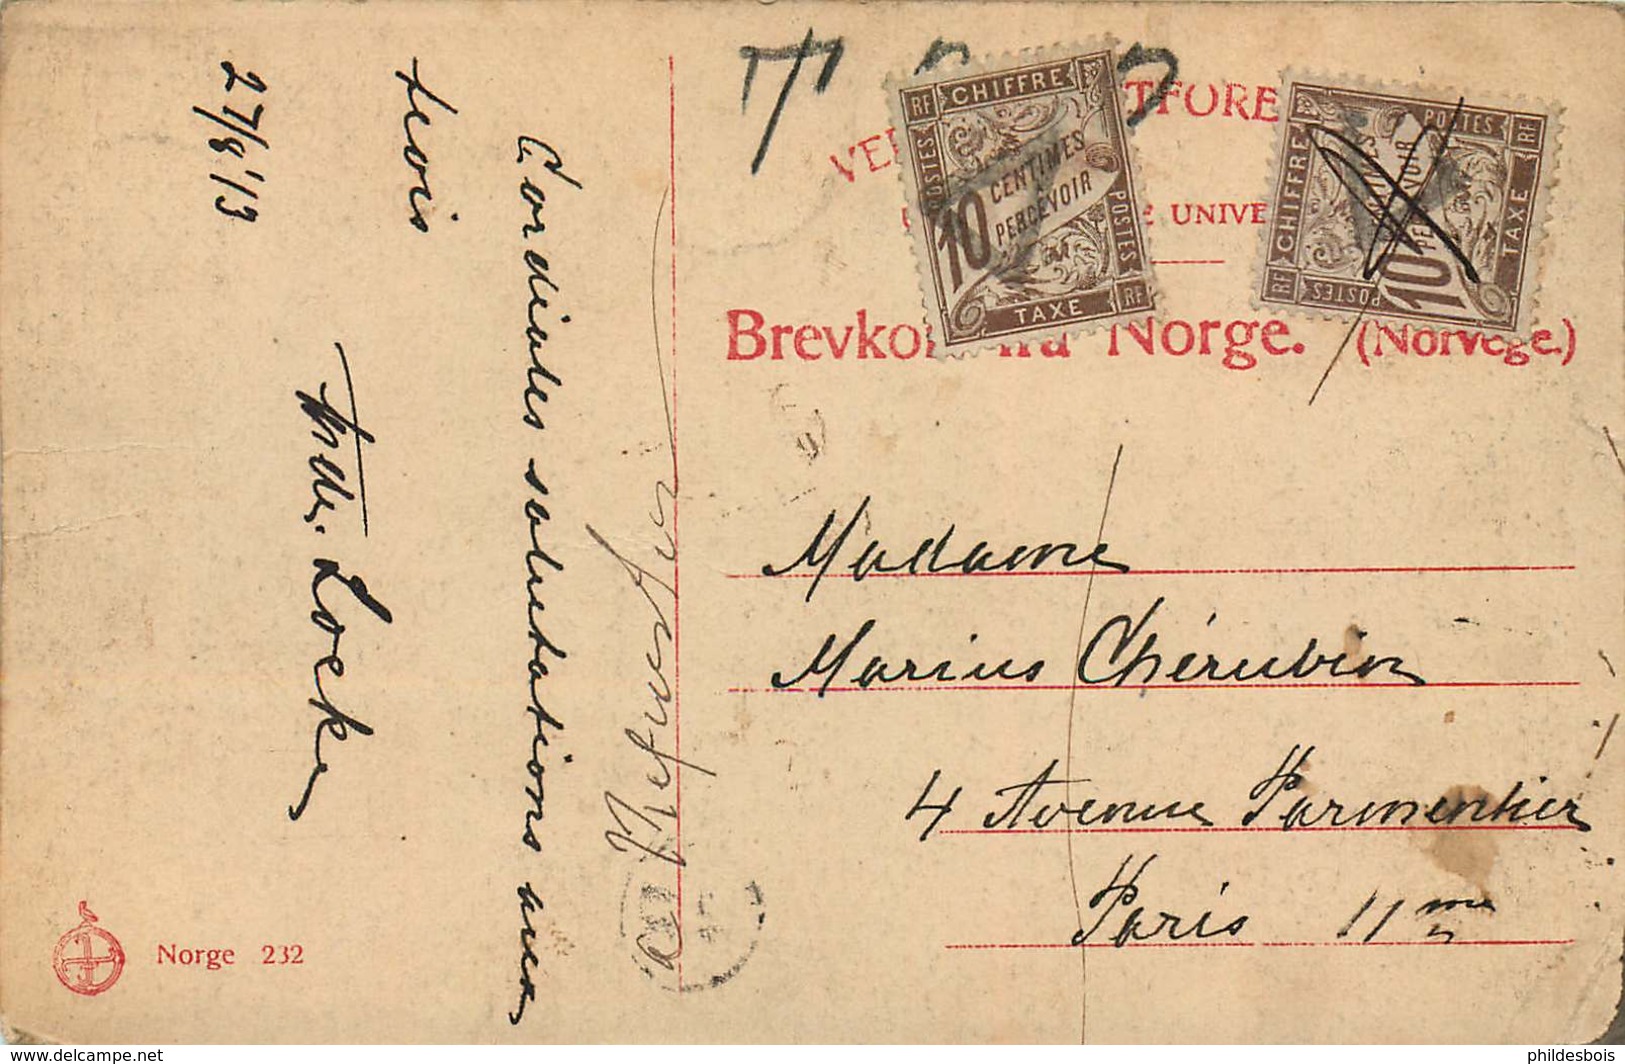 27/8/13
Cordiales salutations aux
trois
Andr. Locke
T
TFORE
UNIVE
Norge. (Norvège.)
RF CHIFFRE
POSTES
10 CENTIMES
À PERCEVOIR
POSTES
TAXE RF
CHIFFRE
POSTES RF
10
TAXE
RF POSTES
Madame
Marius Chérubin
4 Avenue Parmentier
Paris 11me
Norge 232
www.delcampe.net
phildesbois